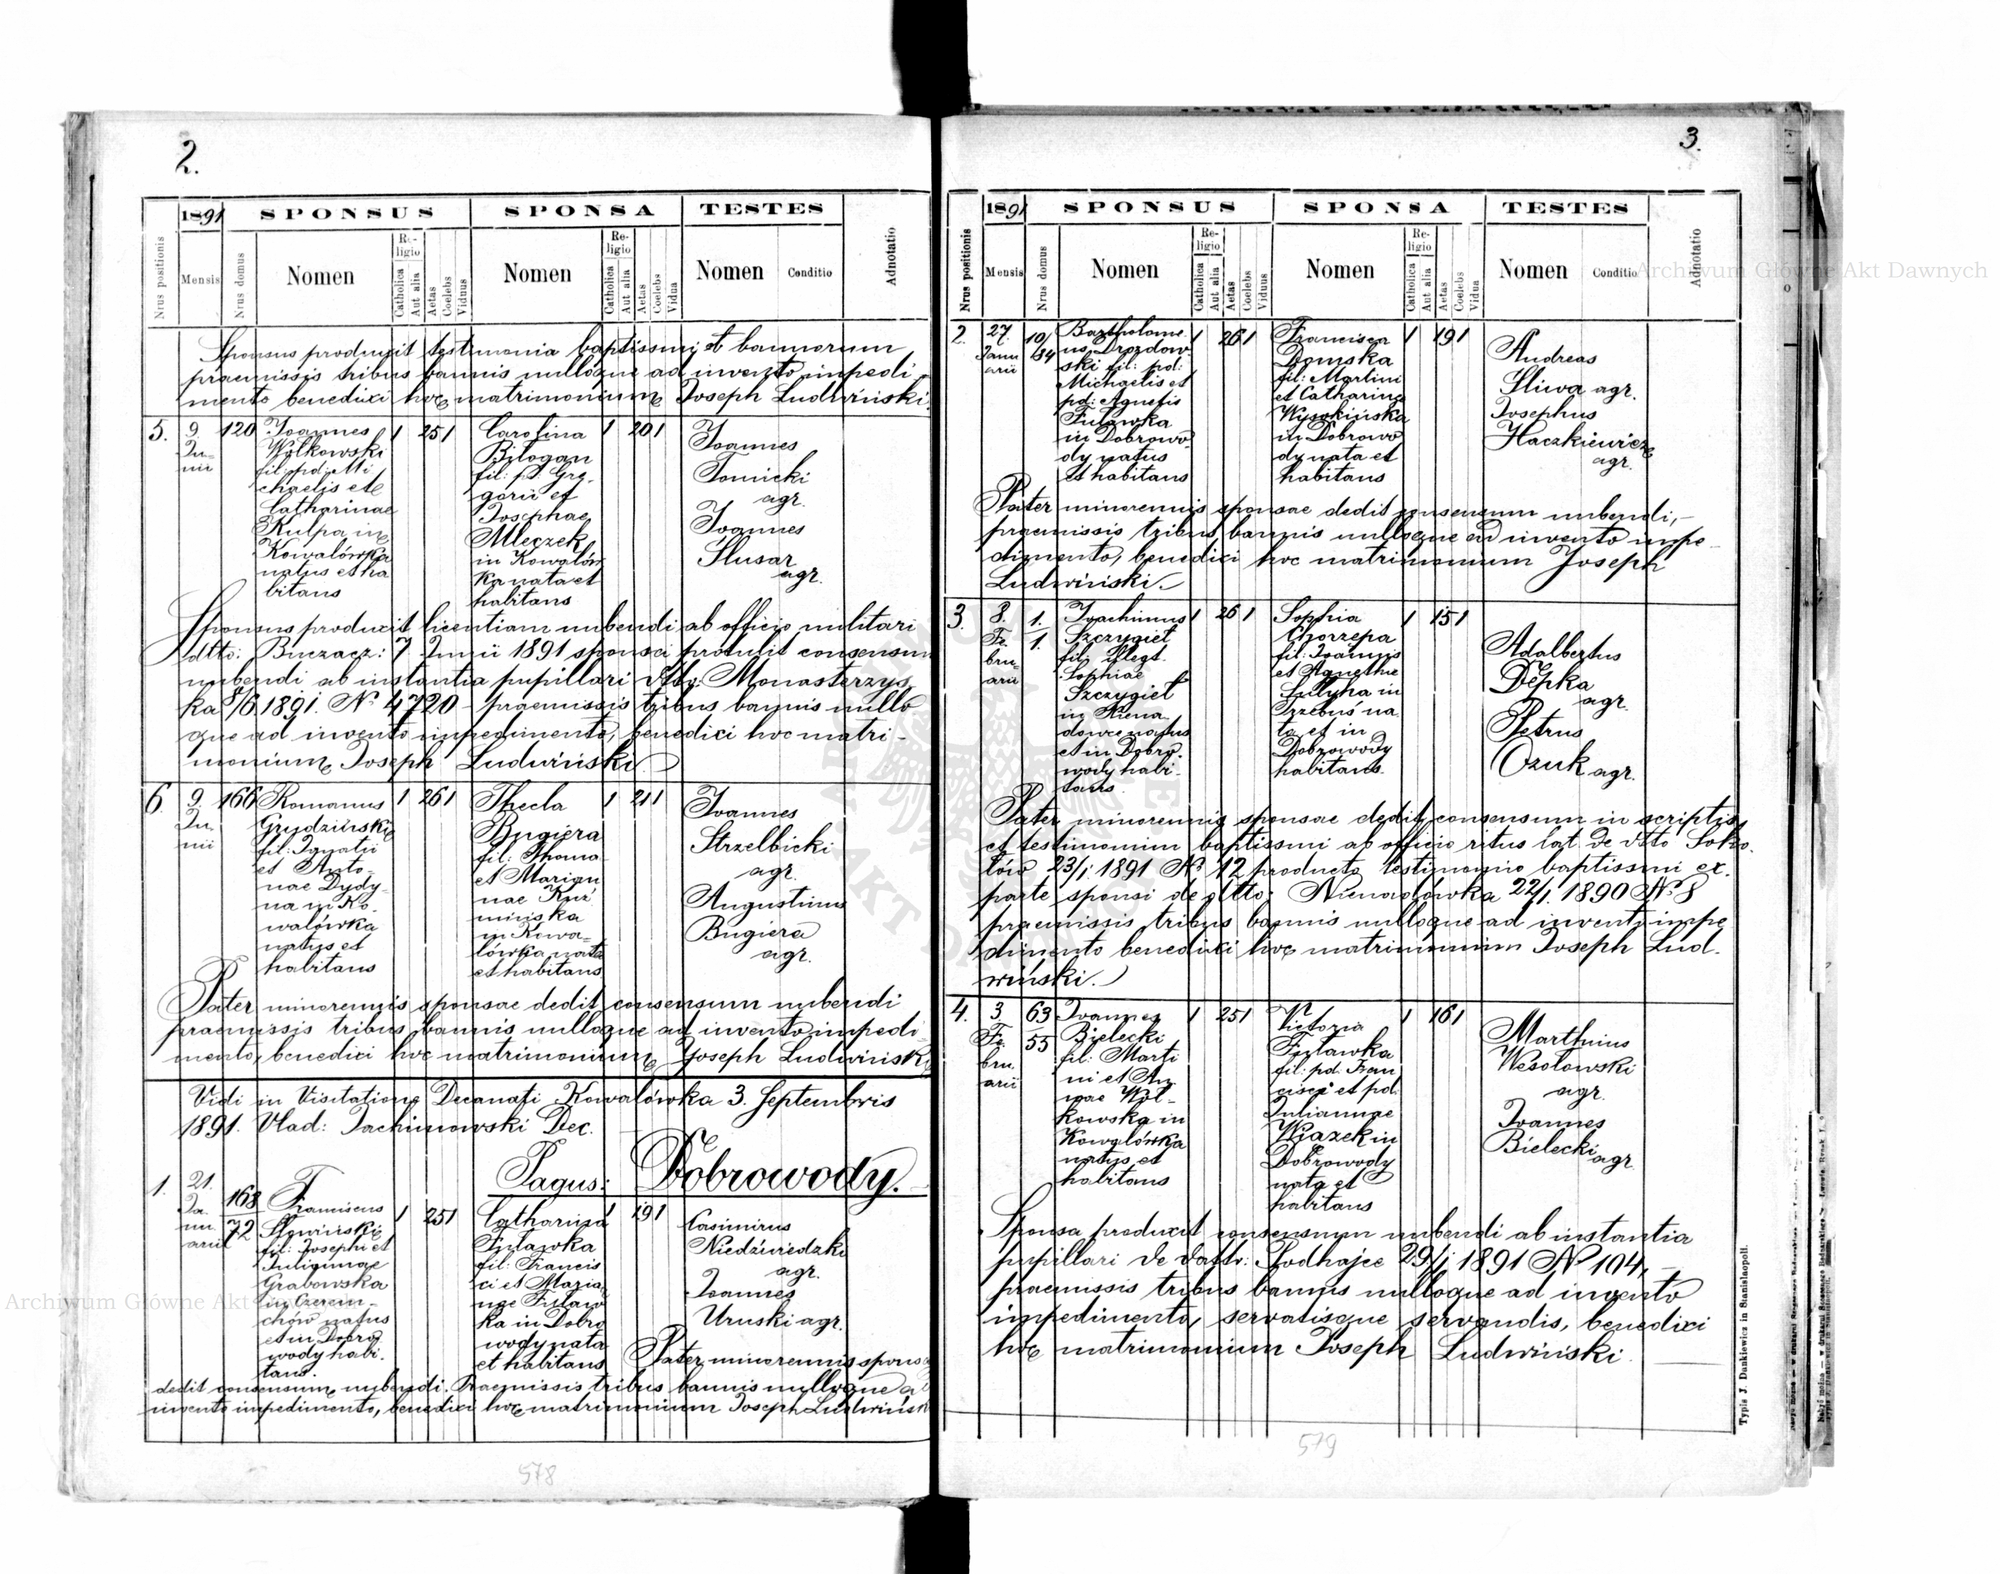 2.
1891
SPONSUS
SPONSA
TESTES
Nrus positionis
Mensis
Nrus domus
Nomen
Religio
Catholica
Aut alia
Aetas
Coelebs
Viduus
Nomen
Religio
Catholica
Aut alia
Aetas
Coelebs
Vidua
Nomen
Conditio
Adnotatio
Sponsus produxit testimonia baptismi et bannorum
praemissis tribus bannis nulloque ad invento impedi
mento benedixi hoc matrimonium Joseph Ludwiński.
5.
9.
Ju-
nii
120
Joannes
Wilkowski
fil: pd: Mi
chaelis et
Catharinae
Kulpa in
Kowalówka
natus et ha
bitans
1
25 1
Carolina
Bilogan
fil: pd: Gre-
gorii et
Josephae
Mleczek
in Kowalów
ka nata et
habitans
1
20 1
Joannes
Tomicki
agr.
Joannes
Ślusar
agr.
Sponsus produxit licentiam nubendi ab officio militari
ddto: Buczacz: 7 Junii 1891 sponsa produxit consensum
nubendi ab instantia pupillari Monasterzys
ka 8/6 1891. No 4720 praemissis tribus bannis nullo
que ad invento impedimento, benedixi hoc matri-
monium Joseph Ludwiński
6.
9.
Ju-
nii
166
Romanus
Grudziński
fil: Ignatii
et Anto-
nae Dydy-
na in Ko-
walówka
natus et
habitans
1
26 1
Thecla
Bugiera
fil: Thoma
et Marian
nae Kuź
mińska
in Kowa-
lówka nata
et habitans
1
21 1
Joannes
Strzelbicki
agr.
Augustinus
Bugiera
agr.
Pater minorennis sponsae dedit consensum nubendi
praemissis tribus bannis nulloque ad invento impedi
mento, benedixi hoc matrimonium Joseph Ludwiński
Vidi in Visitatione Decanati Kowalówka 3. Septembris
1891. Vlad: Jachimowski Dec.
Pagus: Dobrowody.
1.
21.
Ja-
nu-
arii
168
72
Franciscus
fil: Josephi et
Juliannae
Grabowska
in Czerem-
chów natus
et in Dobro
wody habi-
tans.
1
25 1
Catharina
Futawka
fil: Francis
ci et Maria
nae Futaw
ka in Dobro
wody nata
et habitans
19 1
Casimirus
Niedźwiedzki
agr.
Joannes
Uruski agr.
Pater minorennis sponsae
dedit consensum nubendi. Praemissis tribus bannis nulloque a
invento impedimento, benedixi hoc matrimonium Joseph Ludwińsk
578
3.
1891
SPONSUS
SPONSA
TESTES
Nrus positionis
Mensis
Nrus domus
Nomen
Religio
Catholica
Aut alia
Aetas
Coelebs
Viduus
Nomen
Religio
Catholica
Aut alia
Aetas
Coelebs
Vidua
Nomen
Conditio
Adnotatio
2.
27.
Janu
arii
10/
34
Bartholome-
us Drozdow-
ski fil: pd:
Michaelis et
pd: Agnetis
Futawka
in Dobrowo
dy natus
et habitans
1
26 1
Francisca
Domska
fil: Martini
et Catharina
Wysokińska
in Dobrowo
dy nata et
habitans
1
19 1
Andreas
Śliwa agr.
Josephus
Haczkiewicz
agr.
Pater minorennis sponsae dedit consensum nubendi,-
praemissis tribus bannis nulloque ad invento impe-
dimento, benedixi hoc matrimonium Joseph
Ludwiński.
3.
8.
Fe-
bru-
arii
1.
1.
Joachimus
Szczygieł
fil: illegt.
Sophiae
Szczygieł
in Niena
dówce natus
et in Dobro-
wody habi-
tans.
1
26 1
Sophia
Chorzepa
fil: Joannis
et Agnethae
Szlyha in
Trzebuś na
ta et in
Dobrowody
habitans.
1
15 1
Adalbertus
Depka
agr.
Petrus
Ozuk agr.
Pater minorennis sponsae dedit consensum in scriptis
et testimonium baptismi ab officio ritus lat. de dtto Soko-
łów 23/1 1891 No 12 producto testimonio baptismi ex
parte sponsi de dtto: Nienadówka 22/1. 1890 No 8
praemissis tribus bannis nulloque ad invento impe
dimento benedixi hoc matrimonium Joseph Lud-
wiński.
4.
3
Fe-
bru-
arii
63
55
Joannes
Bielecki
fil: Marti
ni et An-
nae Wil-
kowska in
Kowalówka
natus et
habitans
1
25 1
Victoria
Futawka
fil: pd: Fran
cisci et pd.
Juliannae
Wiązek in
Dobrowody
nata et
habitans
1
16 1
Marthinus
Wesołowski
agr.
Joannes
Bielecki agr.
Sponsa produxit consensum nubendi ab instantia
pupillari de datto: Podhajce 29/1 1891 No 104,
praemissis tribus bannis nulloque ad invento
impedimento, servatisque servandis, benedixi
hoc matrimonium Joseph Ludwiński.
Typis J. Dankiewicz in Stanislaopoli.
579
Archiwum Główne Akt Dawnych